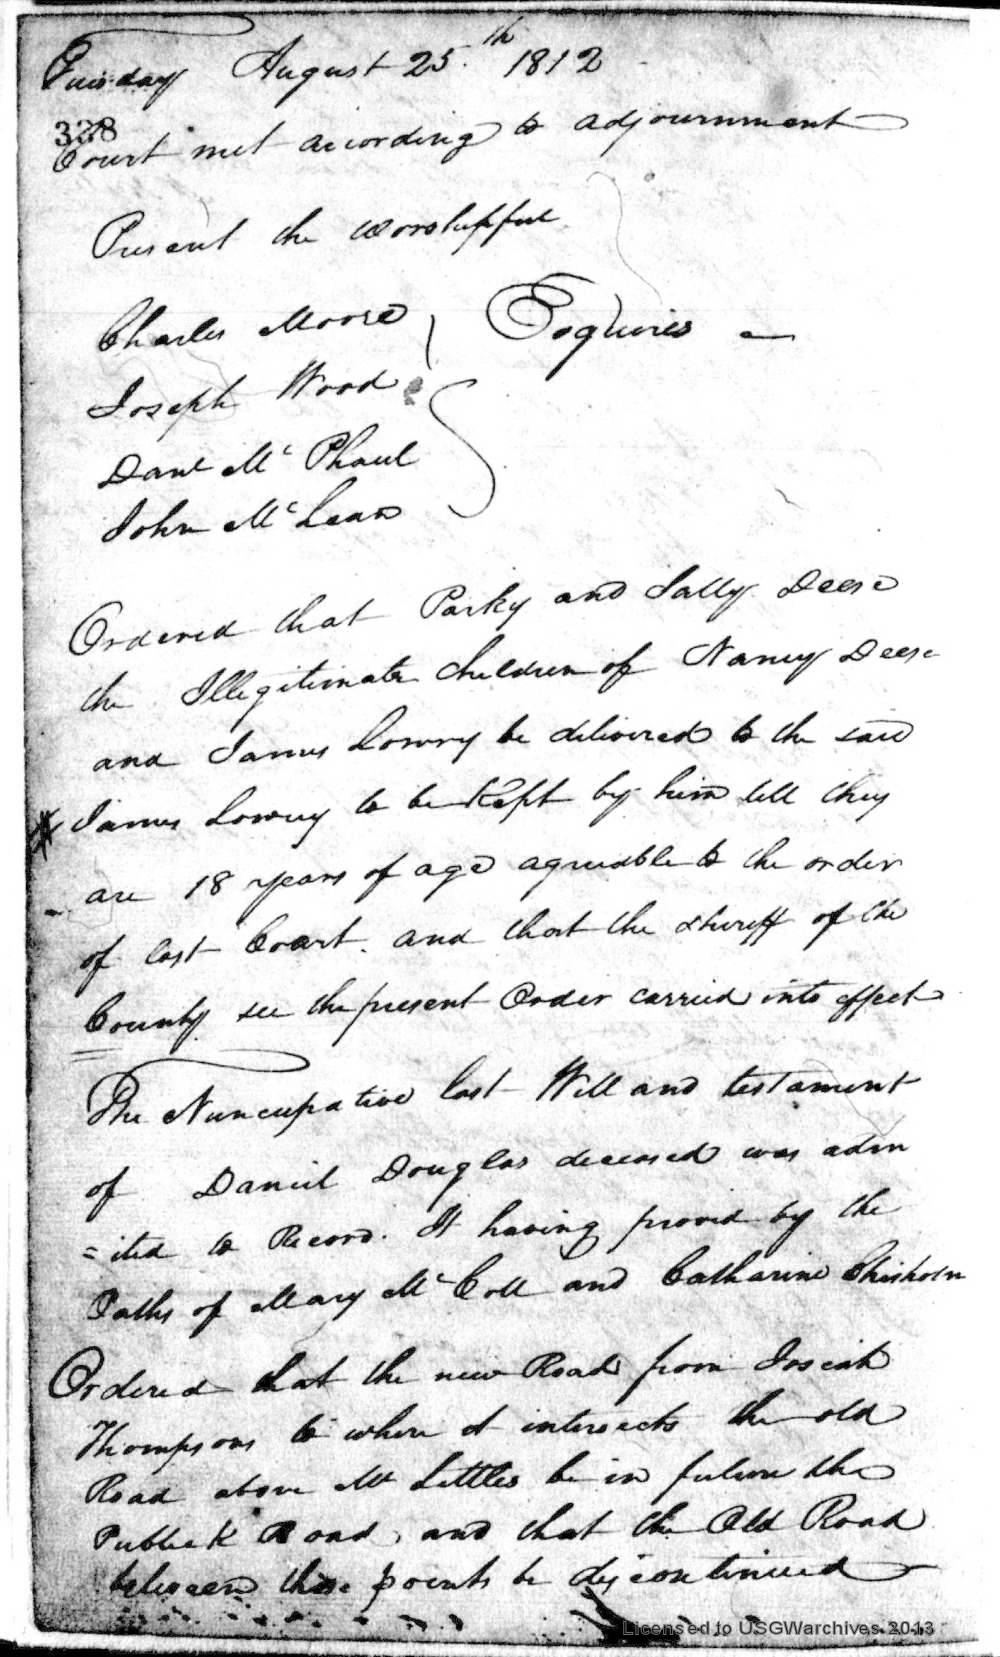 Tuesday August 25th 1812
328
Court met according to adjournment
Present the worshipful
Charles Moore
Esquires
Joseph Wood
Danl Mc Phaul
John Mc Lean
Ordered that Parky and Sally Deese
the Illegitimate Children of Nancy Deese
and James Lowry be delivered to the said
James Lowry to be Kept by him till they
are 18 years of age agreeable to the order
of last Court. and that the sheriff of the
County see the present Order carried into effect
The Nuncupative last Will and testament
of Daniel Douglas deceased was adm
=ited to Record. It having provid by the
Oaths of Mary Mc Coll and Catharine Chisholm
Ordered that the new Road from Josiah
Thompsons to where it intersects the old
Road above Mr Littles be in future the
Publick Road, and that the Old Road
between those points be discontinued
Licensed to USGWarchives 2013